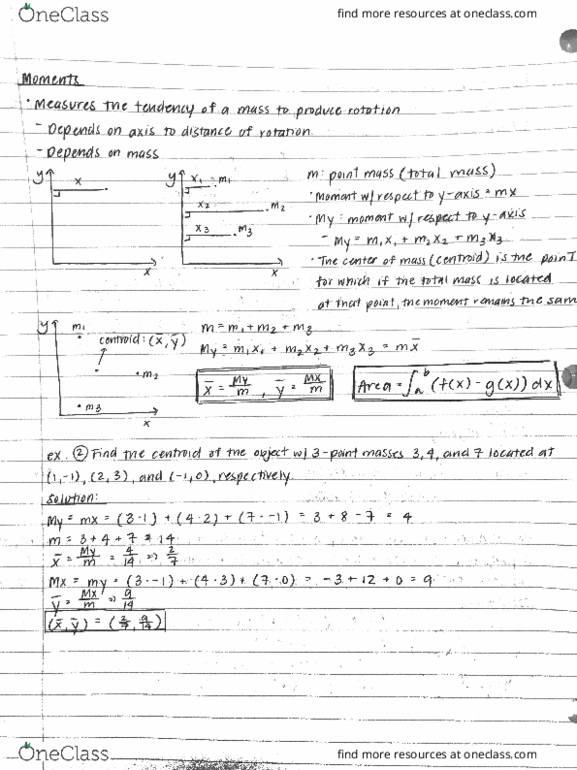 OneClass
find more resources at oneclass.com
Moments
• Measures the tendency of a mass to produce rotation
- Depends on axis to distance of rotation
- Depends on mass
y x x
y x₁ m₁ x₂ m₂ x₃ m₃ x
m: point mass (total mass)
• Moment w/ respect to y-axis = mx
• My: moment w/ respect to y-axis
- My = m₁x₁ + m₂x₂ + m₃x₃
• The center of mass (centroid) is the point
for which if the total mass is located
at that point, the moment remains the sam
y m₁ centroid: (x̄, ȳ) m₂ m₃ x
m = m₁ + m₂ + m₃
My = m₁x₁ + m₂x₂ + m₃x₃ = mx̄
x̄ = My/m , ȳ = Mx/m
Area = ∫ₐᵇ (f(x) - g(x)) dx
ex. ② Find the centroid of the object w/ 3-point masses 3, 4, and 7 located at
(1,-1), (2,3), and (-1,0), respectively.
Solution:
My = mx = (3·1) + (4·2) + (7·-1) = 3 + 8 - 7 = 4
m = 3 + 4 + 7 = 14
x̄ = My/m = 4/14 ⇒ 2/7
Mx = my = (3·-1) + (4·3) + (7·0) = -3 + 12 + 0 = 9
ȳ = Mx/m ⇒ 9/14
(x̄, ȳ) = (2/7, 9/14)
OneClass
find more resources at oneclass.com